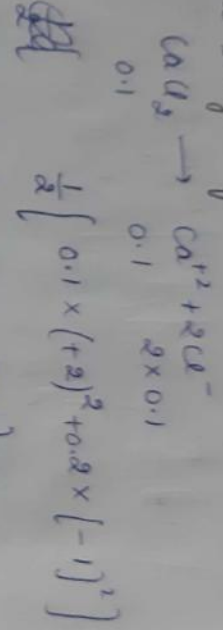 CaCl₂ → Ca⁺² + 2Cl⁻
0.1 0.1 2×0.1
1/2 [ 0.1 × (+2)² + 0.2 × (-1)² ]